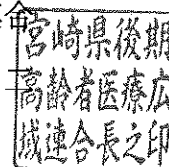 宮崎県後期
高齢者医療広
域連合長之印